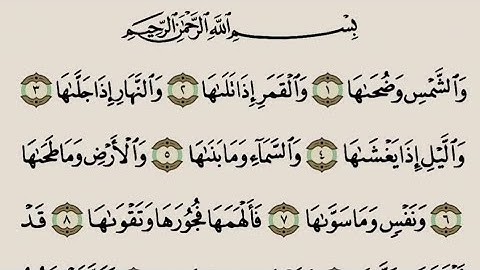 بِسْمِ ٱللَّهِ ٱلرَّحْمَٰنِ ٱلرَّحِيمِ
وَٱلشَّمْسِ وَضُحَىٰهَا ١ وَٱلْقَمَرِ إِذَا تَلَىٰهَا ٢ وَٱلنَّهَارِ إِذَا جَلَّىٰهَا ٣
وَٱلَّيْلِ إِذَا يَغْشَىٰهَا ٤ وَٱلسَّمَآءِ وَمَا بَنَىٰهَا ٥ وَٱلْأَرْضِ وَمَا طَحَىٰهَا
٦ وَنَفْسٍ وَمَا سَوَّىٰهَا ٧ فَأَلْهَمَهَا فُجُورَهَا وَتَقْوَىٰهَا ٨ قَدْ